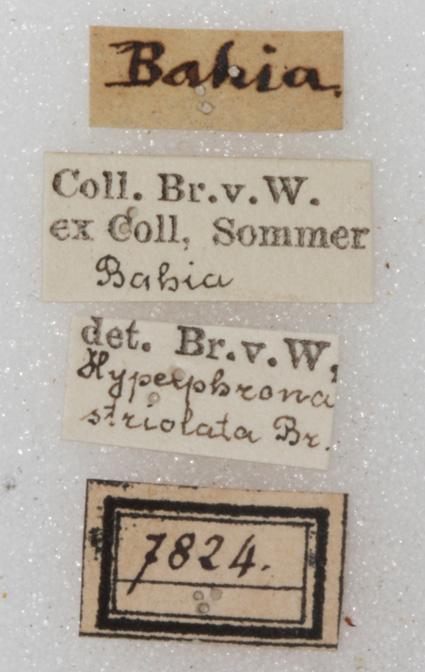 Bahia.
Coll. Br.v.W.
ex Coll, Sommer
Bahia
det. Br.v.W,
Hyperphrona
striolata Br.
7824.